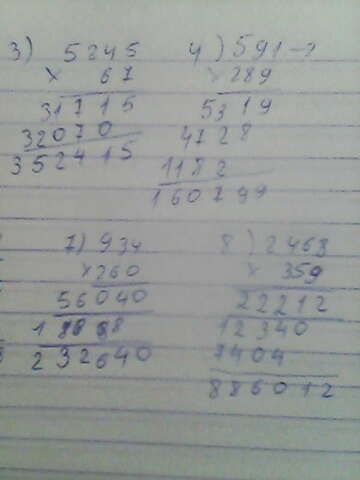 3) 5245
× 67
31715
32070
352415
4) 591
× 289
5319
4728
1182
160799
7) 934
× 260
56040
232640
8) 2468
× 359
22212
12340
7404
886012